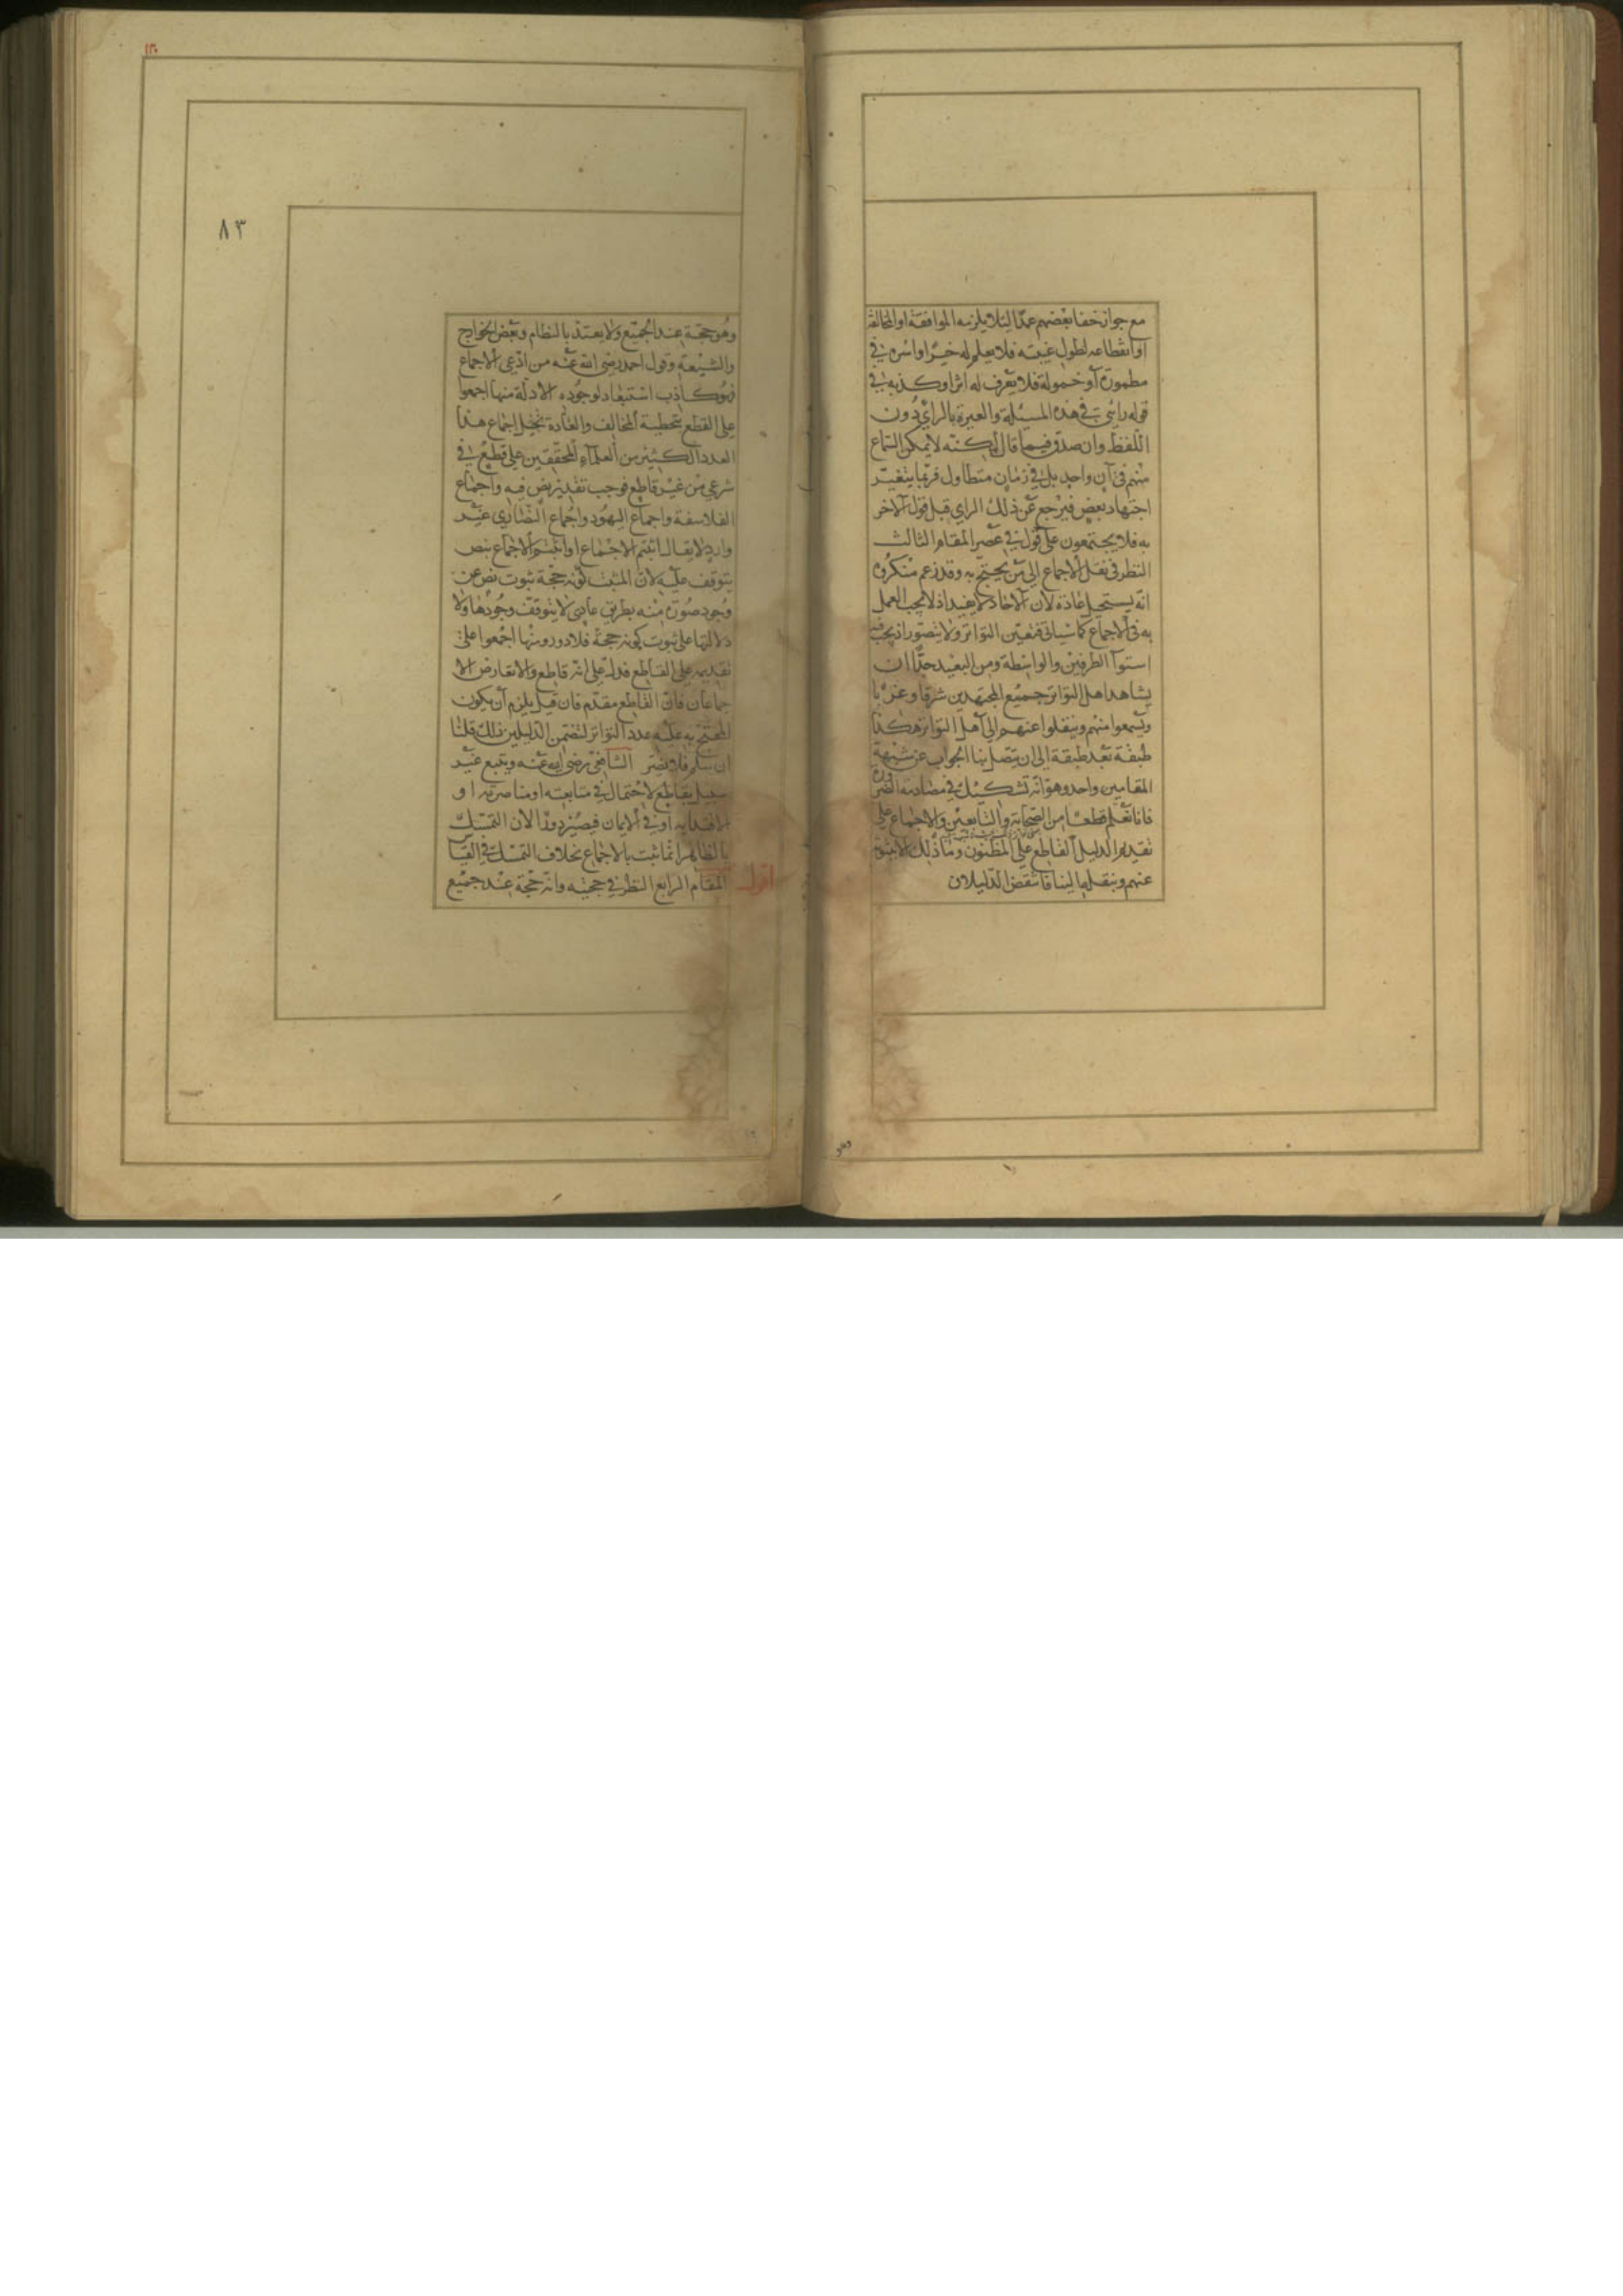 مع جواز خفا بعضهم عمدا لئلا يلزمه الموافقة او المخالفة
او انقطاعه لطول غيبته فلا يعلم له خبر او اسره في
مطمورة او خموله فلا يعرف له اثر او كذبه في
قوله رائي في هذه المسئلة والعبرة بالراي دون
اللفظ وان صدق فيما قال لكنه لا يمكن السماع
منهم في آن واحد بل في زمان متطاول فربما يتغير
اجتهاد بعض فيرجع عن ذلك الراي قبل قول الاخر
به فلا يجتمعون على قول في عصر المقام الثالث
النظر في نقل الاجماع الى من يحتج به وقد زعم منكروه
انه يستحيل عادة لان الاحاد لا يفيد اذ لا يجب العمل
به في الاجماع كما سياتي فتعين التواتر ولا يتصور اذ يجب فيه
استوآ الطرفين والواسطة ومن البعيد جدا ان
يشاهد اهل التواتر جميع المجتهدين شرقا وغربا
ويسمعوا منهم وينقلوا عنهم الى اهل التواتر هكذا
طبقة بعد طبقة الى ان يتصل بنا الجواب عن شبهة
المقامين واحد وهو انه تشكيك في مصادمة الضرورة
فانا نعلم قطعا من الصحابة والتابعين والاجماع على
تقديم الدليل القاطع على المظنون وما ذلك الا بثبوته
عنهم وبنقله الينا فانتقض الدليلان
وهو
١٣٠
٨٣
وهو حجة عند الجميع ولا يعتد بالنظام وبعض الخوارج
والشيعة وقول احمد رضي الله عنه من ادعى الاجماع
فهو كاذب استبعاد لوجوده الادلة منها اجمعوا
على القطع بتخطية المخالف والعادة تحيل اجماع هذا
العدد الكثير من العلمآء المحققين على قطع في
شرعي من غير قاطع فوجب تقدير نص فيه واجماع
الفلاسفة واجماع اليهود واجماع النصارى غير
وارد لا يقال اثبتم الاجماع او اثبتم الاجماع بنص
يتوقف عليه لان المثبت كونه حجة ثبوت نص عن
وجود صورة منه بطريق عادي لا يتوقف وجودها ولا
دلالتها على ثبوت كونه حجة فلا دور ومنها اجمعوا على
تقديمه على القاطع فدل على انه قاطع والا تعارض الا
جماعان فان القاطع مقدم فان قيل يلزم ان يكون
المحتج به عليه عدد التواتر لتضمن الدليلين ذلك قلنا
ان سلم فلا يضر الشافعي رضي الله عنه ويتبع غير
سبيل بقاطع لاحتمال في متابعته او مناصرته او
الاقتدا به او في الايمان فيصير دورا لان التمسك
بالظاهر انما ثبت بالاجماع بخلاف التمسك في القياس
اقول المقام الرابع النظر في حجيته وانه حجة عند جميع